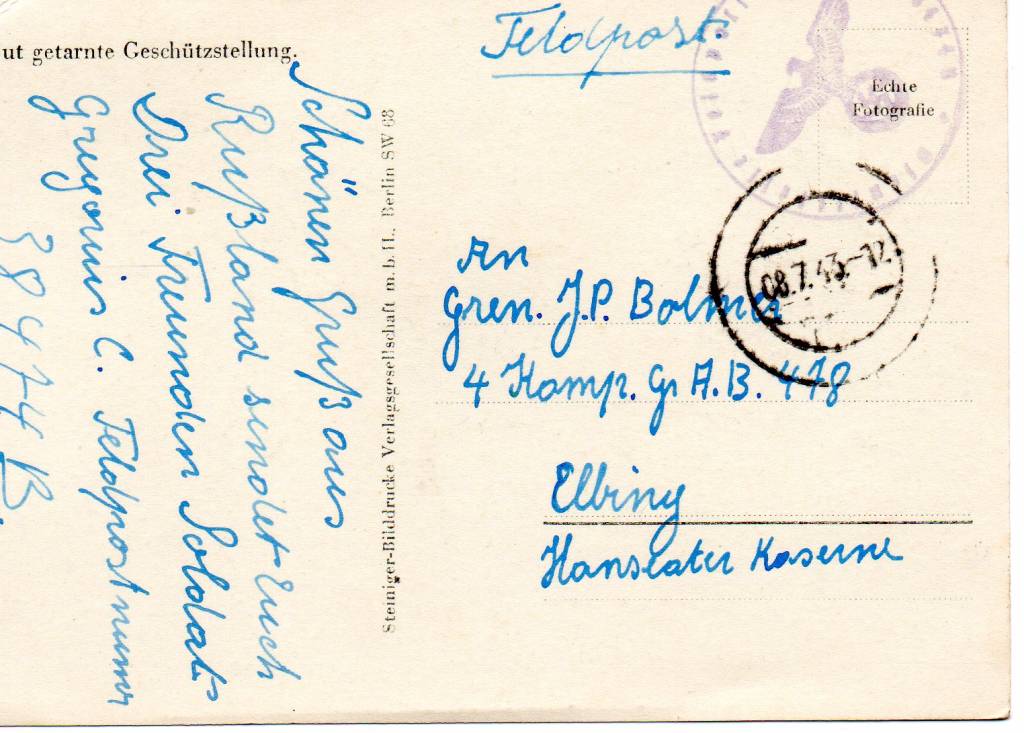 ut getarnte Geschützstellung.
Schönen Gruß aus
Rußland sendet Euch
Drei Freunden Soldat
Gregorius C. Feldpostnumr
38474 B.
Steiniger-Bilddrucke Verlagsgesellschaft m.b.H., Berlin SW 68
Feldpost.
Echte
Fotografie
08.7.43.-12
An
Gren. J.P. Bolmer
4 Komp. Gr A.B. 478
Elbing
Hanseater Kaserne